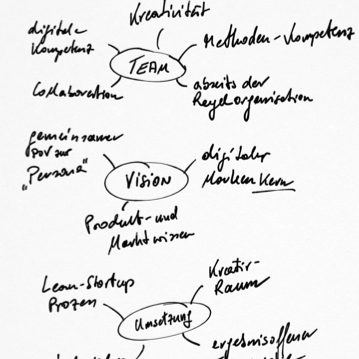 Kreativität
digitale
Kompetenz
Methoden-Kompetenz
TEAM
Collaboration
abseits der
Regelorganisation
gemeinsamer
POV zur
"Persona"
digitaler
Marken Kern
VISION
Produkt- und
Markt wissen
Lean-Startup
Prozess
Kreativ-
Raum
Umsetzung
ergebnisoffener